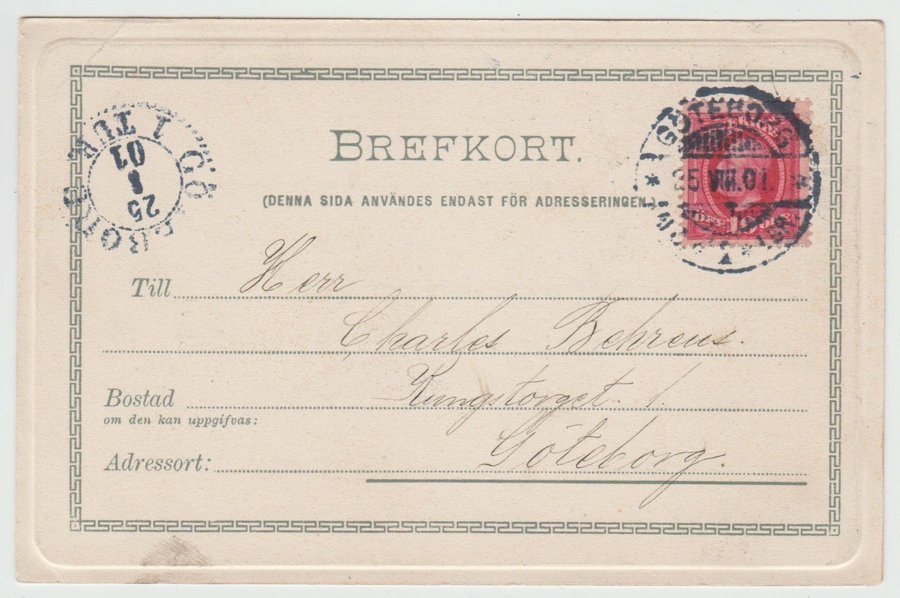 BREFKORT.
(DENNA SIDA ANVÄNDES ENDAST FÖR ADRESSERINGEN.)
GÖTEBORG
25 VIII.01.
GÖTEBORG 1 TUR
25
8
01
Till Herr
Charles Behrens.
Bostad Kungstorget 1.
om den kan uppgifvas:
Adressort: Göteborg.